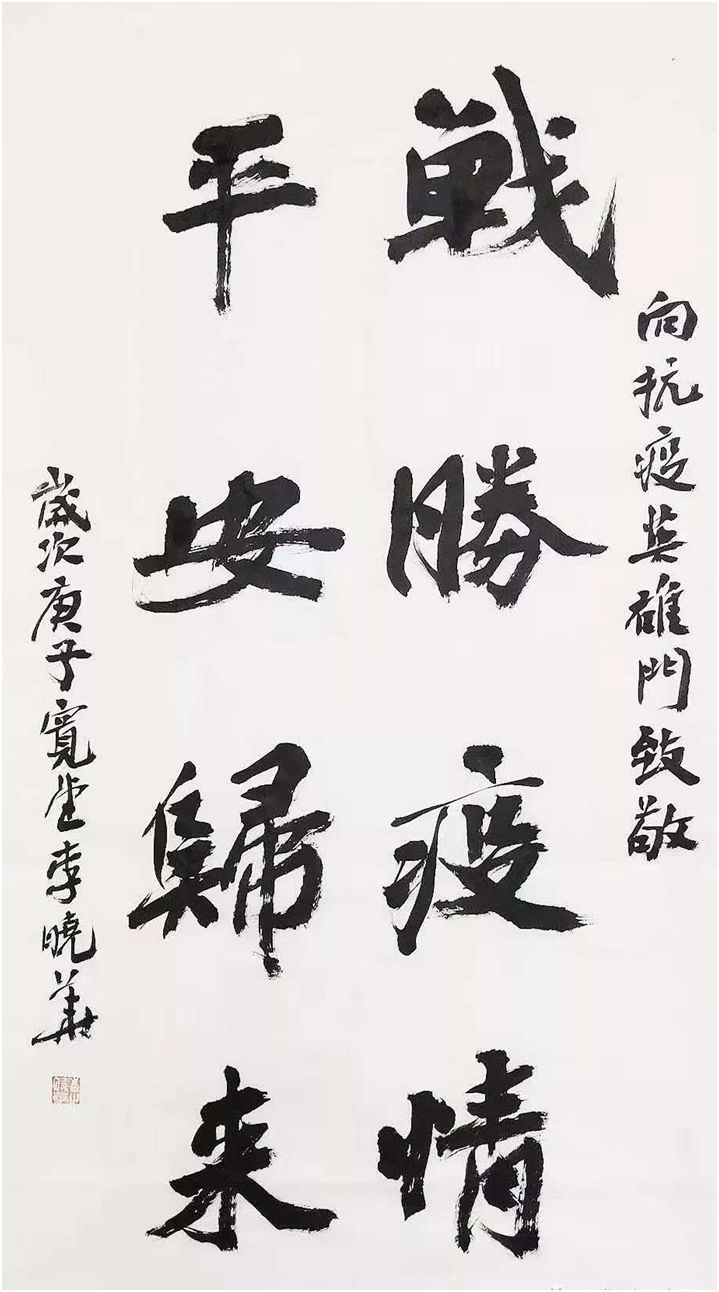 向抗疫英雄門致敬
戰勝疫情
平安歸来
歲次庚子寬堂李曉華